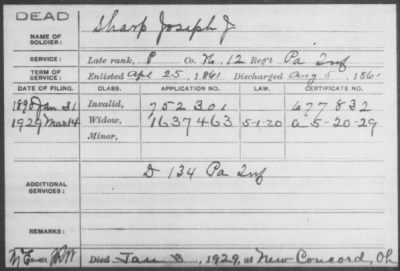 DEAD
NAME OF SOLDIER: Sharp Joseph J
SERVICE: Late rank, P Co. K, 12 Reg't Pa Inf
TERM OF SERVICE: Enlisted Apr 25, 1861 Discharged Aug 5, 1861
DATE OF FILING. CLASS. APPLICATION NO. LAW. CERTIFICATE NO.
1890 Jan 31 Invalid, 752301 677832
1929 Mar 14 Widow, 1637463 5-1-20 a 5-20-29
Minor,
ADDITIONAL SERVICES: D 134 Pa Inf
REMARKS:
Died Jan 3, 1929, at New Concord, Oh